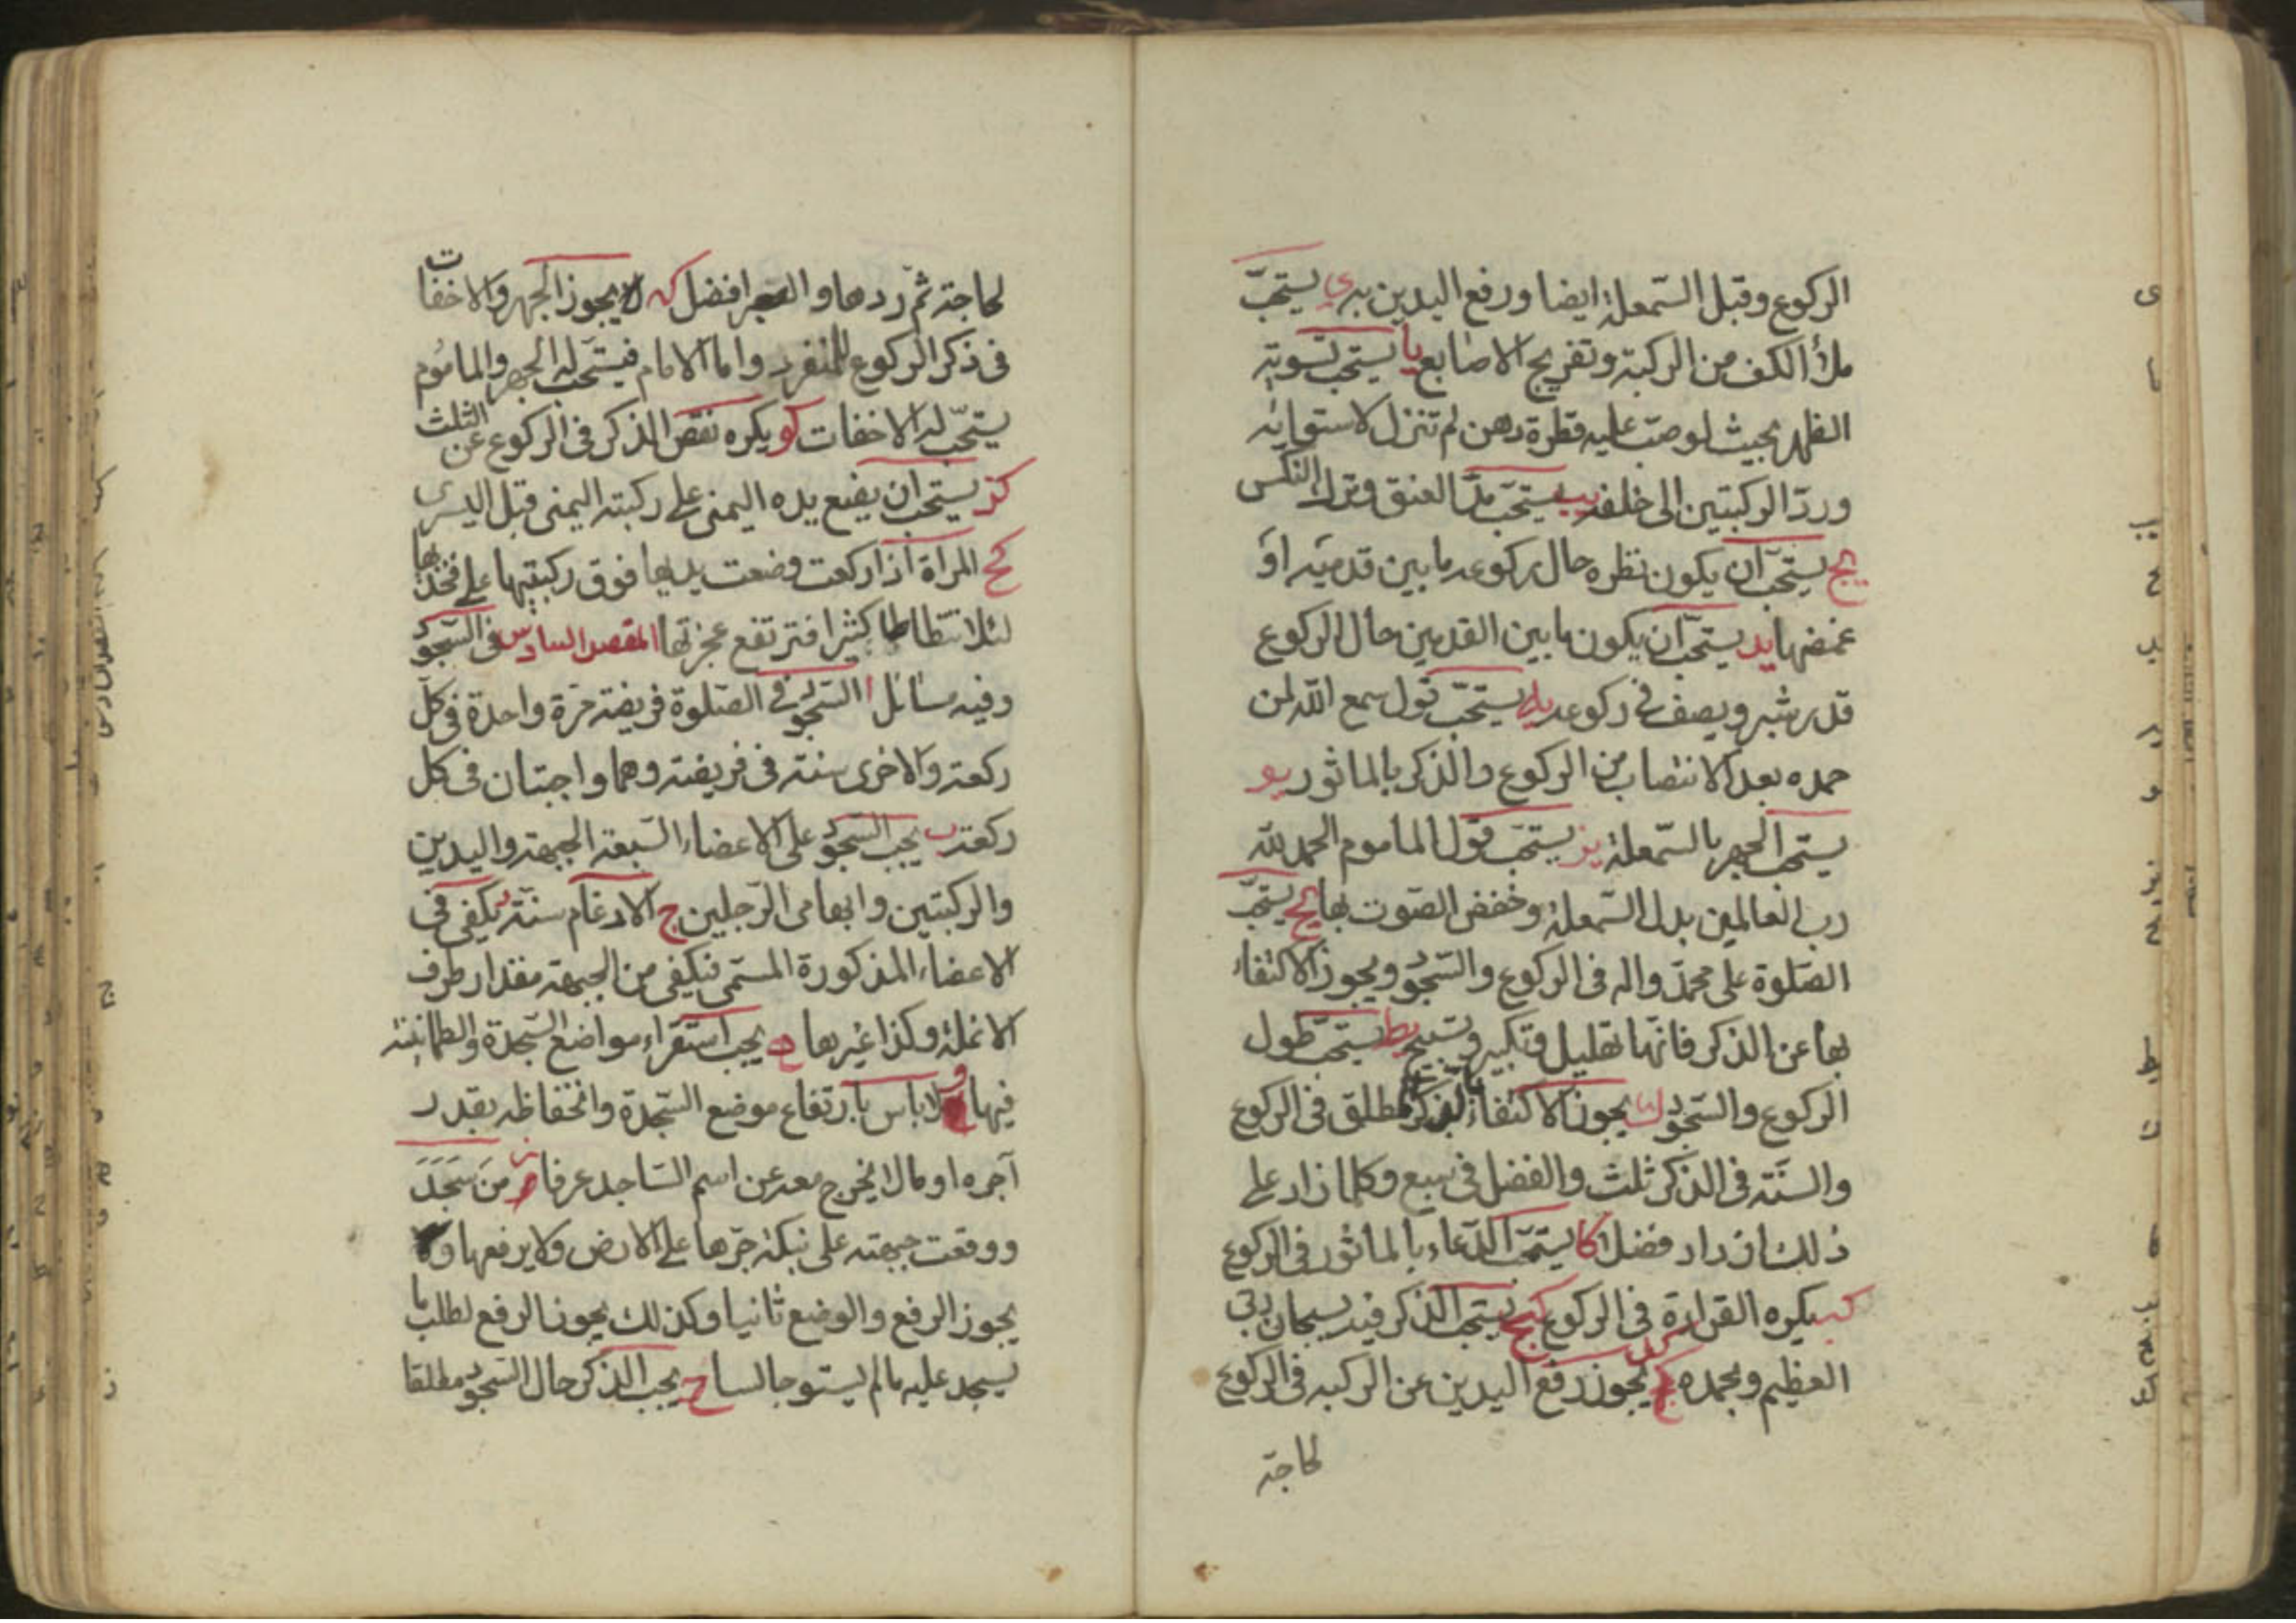 الركوع وقبل السّمعلة ايضا ورفع اليدين به ى يستحبّ
ملأ الكف من الركبة وتفريج الاصابع يا يستحب تسوية
الظهر بحيث لو صبّ عليه قطرة دهن لم تنزل لاستوائه
وردّ الركبتين الى خلفه يب يستحبّ مدّ العنق وترك النكس
يج يستحبّ ان يكون نظره حال ركوعه ما بين قدميه او
غمضها يد يستحبّ ان يكون ما بين القدمين حال الركوع
قدر شبر ويصف فى ركوعه يه يستحبّ قول سمع الله لمن
حمده بعد الانتصاب من الركوع والذكر بالماثور يو
يستحب الجهر بالسّمعلة يز يستحب قول الماموم الحمد لله
رب العالمين بدل السّمعلة وخفض الصّوت بها يح يستحبّ
الصّلوة على محمّد واله فى الركوع والسّجود ويجوز الاكتفاء
بها عن الذكر فانّها تهليل وتكبير وتسبيح يط يستحبّ طول
الركوع والسّجود ك يجوز الاكتفاء بالذكر المطلق فى الركوع
والسنّة فى الذكر ثلث والفضل فى سبع وكلما زاد على
ذلك ازداد فضلا كا يستحبّ الدّعاء بالماثور فى الركوع
كب يكره القراءة فى الركوع كج يستحب الذكر فيه سبحان ربّى
العظيم وبحمده كد يجوز رفع اليدين عن الركبه فى الركوع
لحاجة
لحاجة ثمّ ردها والصبر افضل كه لا يجوز الجهر والاخفات
فى ذكر الركوع للمنفرد واما الامام فيستحب له الجهر والماموم
يستحبّ له الاخفات كو يكره نقص الذكر فى الركوع عن الثلث
كز يستحب ان يضع يده اليمنى على ركبته اليمنى قبل اليسرى
كح المراة اذا ركعت وضعت يديها فوق ركبتيها على فخذيها
لئلا تتطاطا كثيرا فترتفع عجزتها المقصد السادس فى السّجود
وفيه مسائل ا السّجود فى الصّلوة فريضة مرّة واحدة فى كل
ركعة والاخرى سنة فى فريضة وهما واجبتان فى كل
ركعة ب يجب السّجود على الاعضاء السّبعة الجبهة واليدين
والركبتين وابهامى الرّجلين ج الارغام سنّة د يكفى فى
الاعضاء المذكورة المسمّى فيكفى من الجبهة مقدار طرف
الانملة وكذا غيرها ه يجب استقراء مواضع السّجدة والطمانينة
فيها و لا باس بارتفاع موضع السّجدة وانخفاظه بقدر
آجره او مالا يخرج معه عن اسم السّاجد عرفا ز من سَجَدَ
ووقعت جبهته على نبكة جرّها على الارض ولا يرفعها ولا
يجوز الرفع والوضع ثانيا وكذلك يجوز الرفع لطلب ما
يسجد عليه مالم يستو جالسا ح يجب الذكر حال السّجود مطلقا